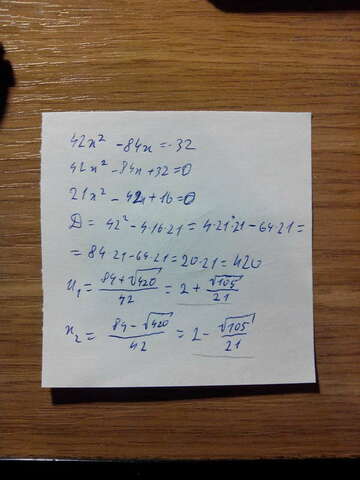 42x² - 84x = -32
42x² - 84x + 32 = 0
21x² - 42x + 16 = 0
D = 42² - 4·16·21 = 4·21·21 - 64·21 =
= 84·21 - 64·21 = 20·21 = 420
x₁ = (84 + √420)/42 = 2 + √105/21
x₂ = (84 - √420)/42 = 2 - √105/21